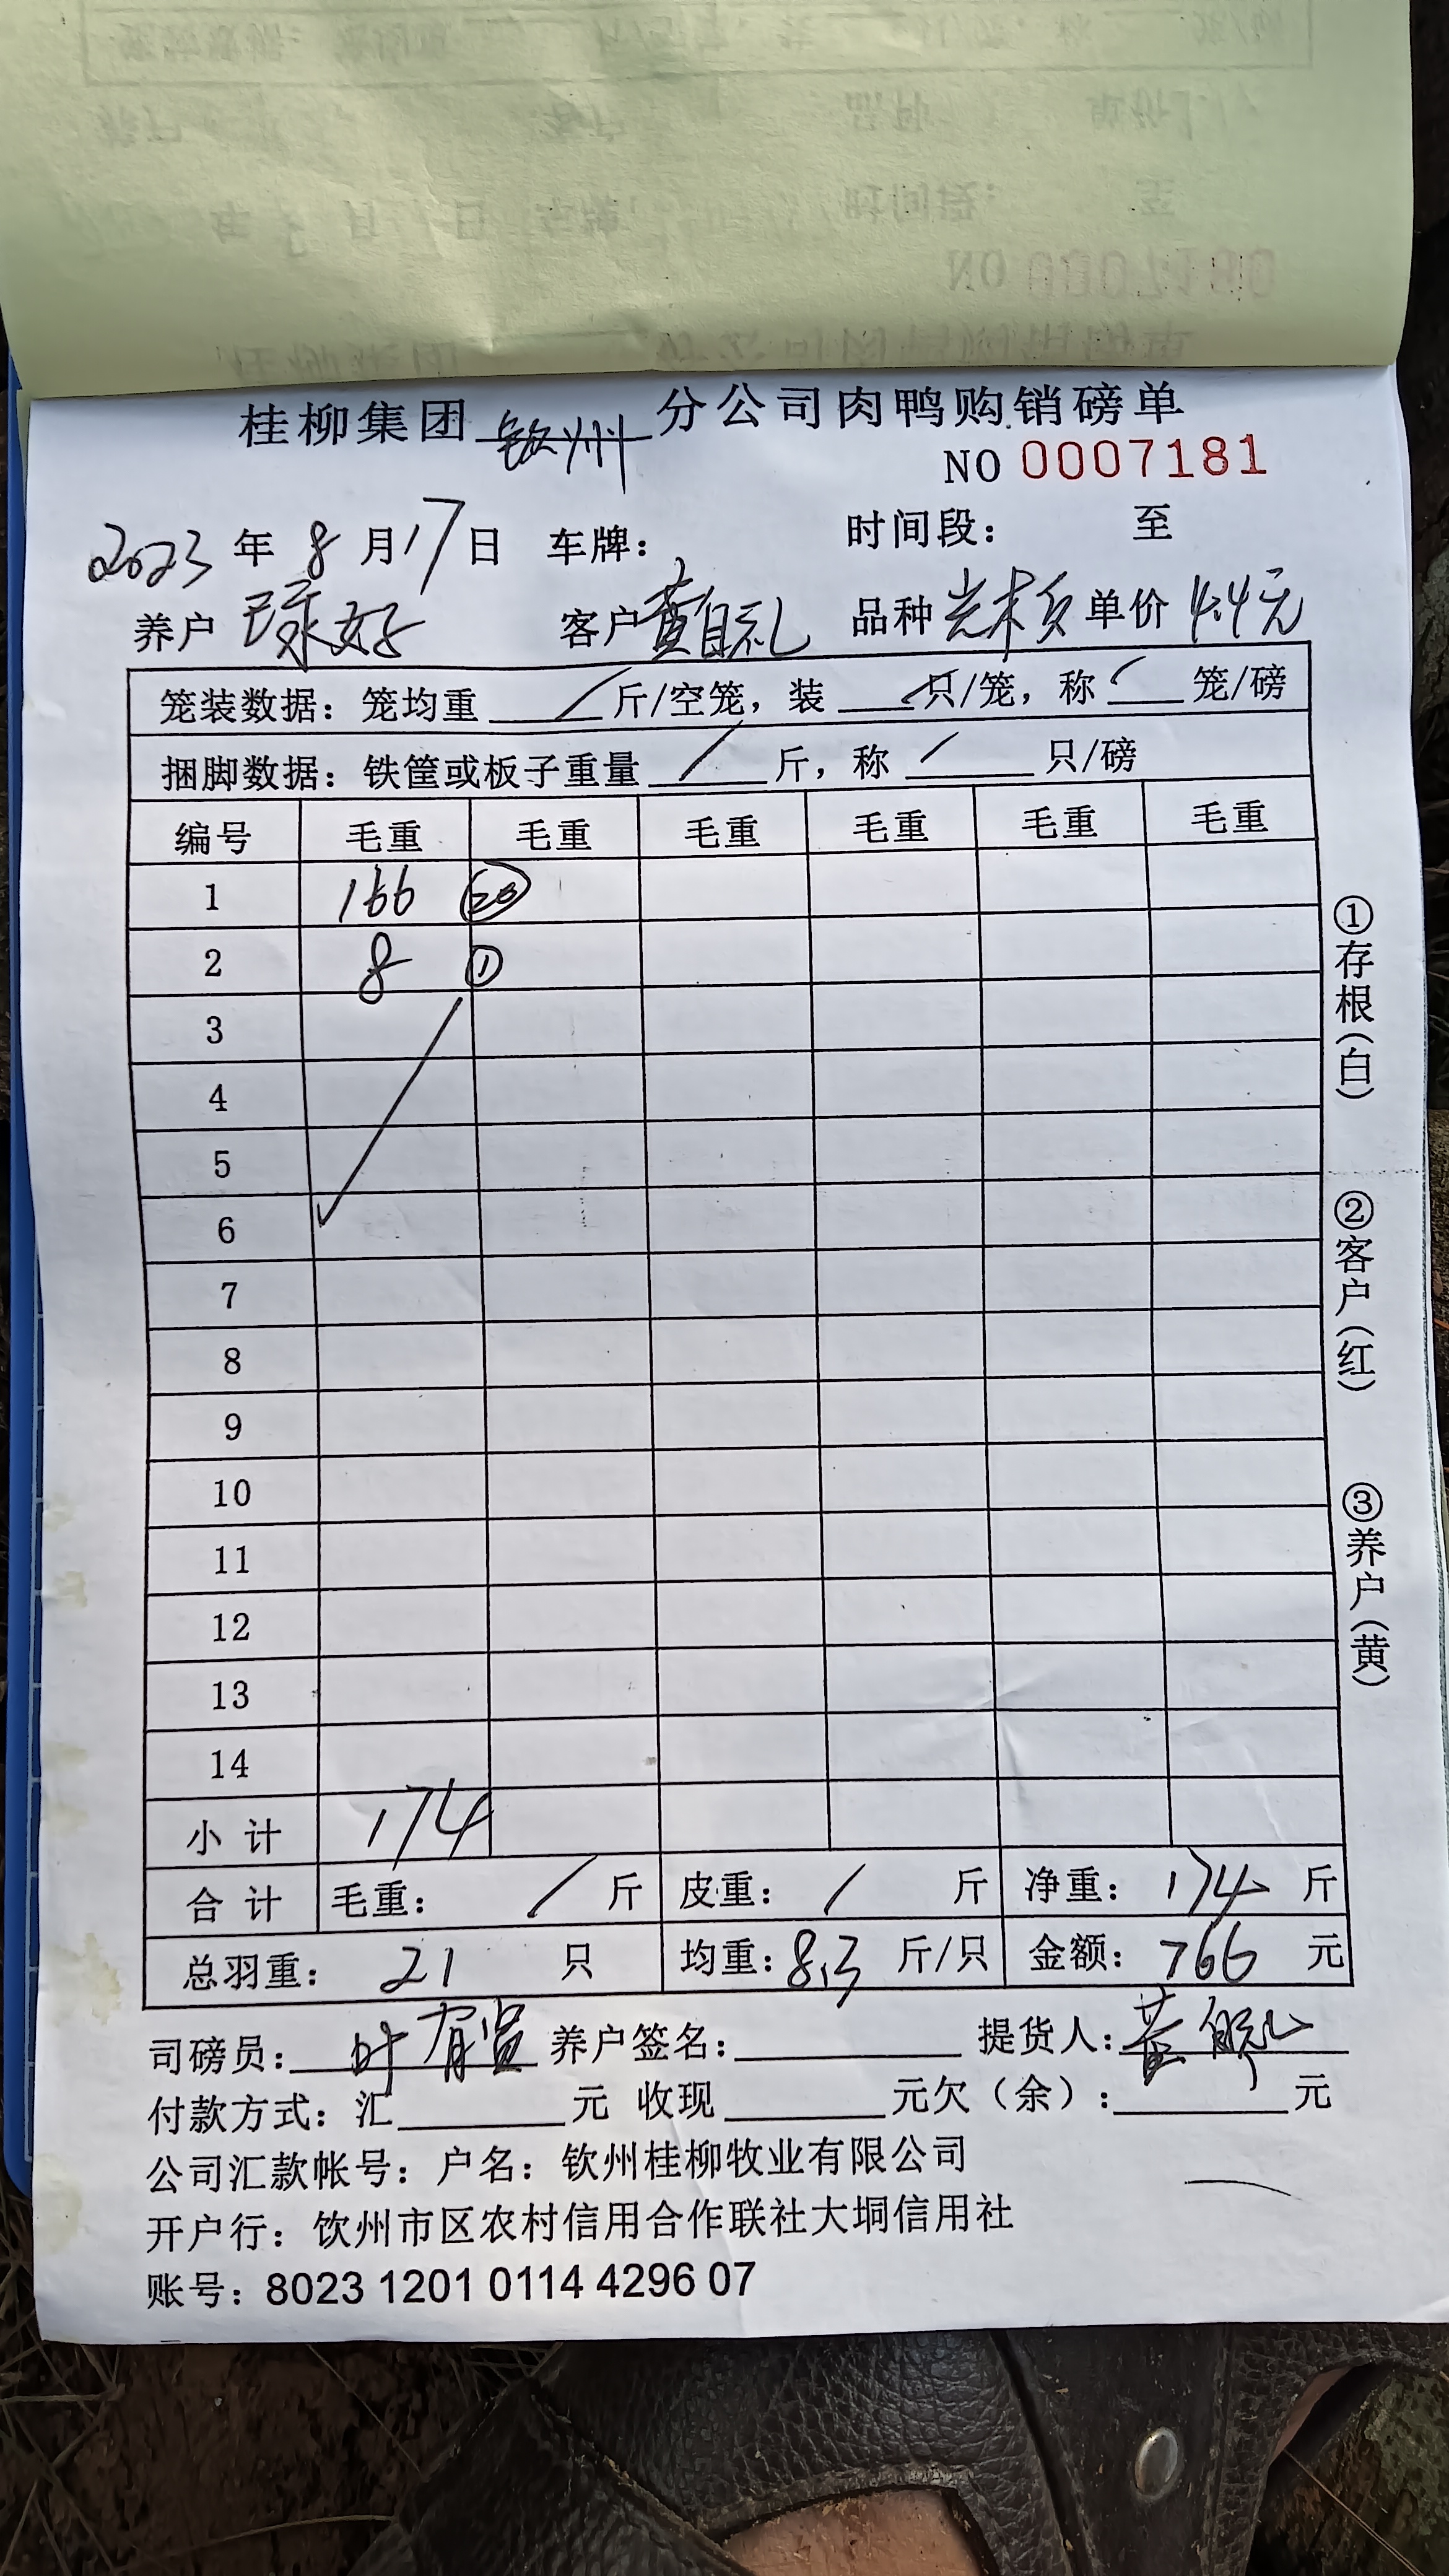 桂柳集团钦州分公司肉鸭购销磅单
NO 0007181
2023年8月17日 车牌： 时间段： 至
养户 球好 客户 黄自礼 品种 单价 4.4元
笼装数据：笼均重 / 斤/空笼，装 / 只/笼，称 / 笼/磅
捆脚数据：铁筐或板子重量 / 斤，称 / 只/磅
编号 毛重 毛重 毛重 毛重 毛重 毛重
1 166 20
2 8 1
3
4
5
6
7
8
9
10
11
12
13
14
小计 174
合计 毛重： / 斤 皮重： / 斤 净重：174 斤
总羽重：21 只 均重：8.3 斤/只 金额：766 元
司磅员：叶 养户签名： 提货人：黄
付款方式：汇 元 收现 元欠（余）： 元
公司汇款帐号：户名：钦州桂柳牧业有限公司
开户行：钦州市区农村信用合作联社大垌信用社
账号：8023 1201 0114 4296 07
①存根（白）
②客户（红）
③养户（黄）